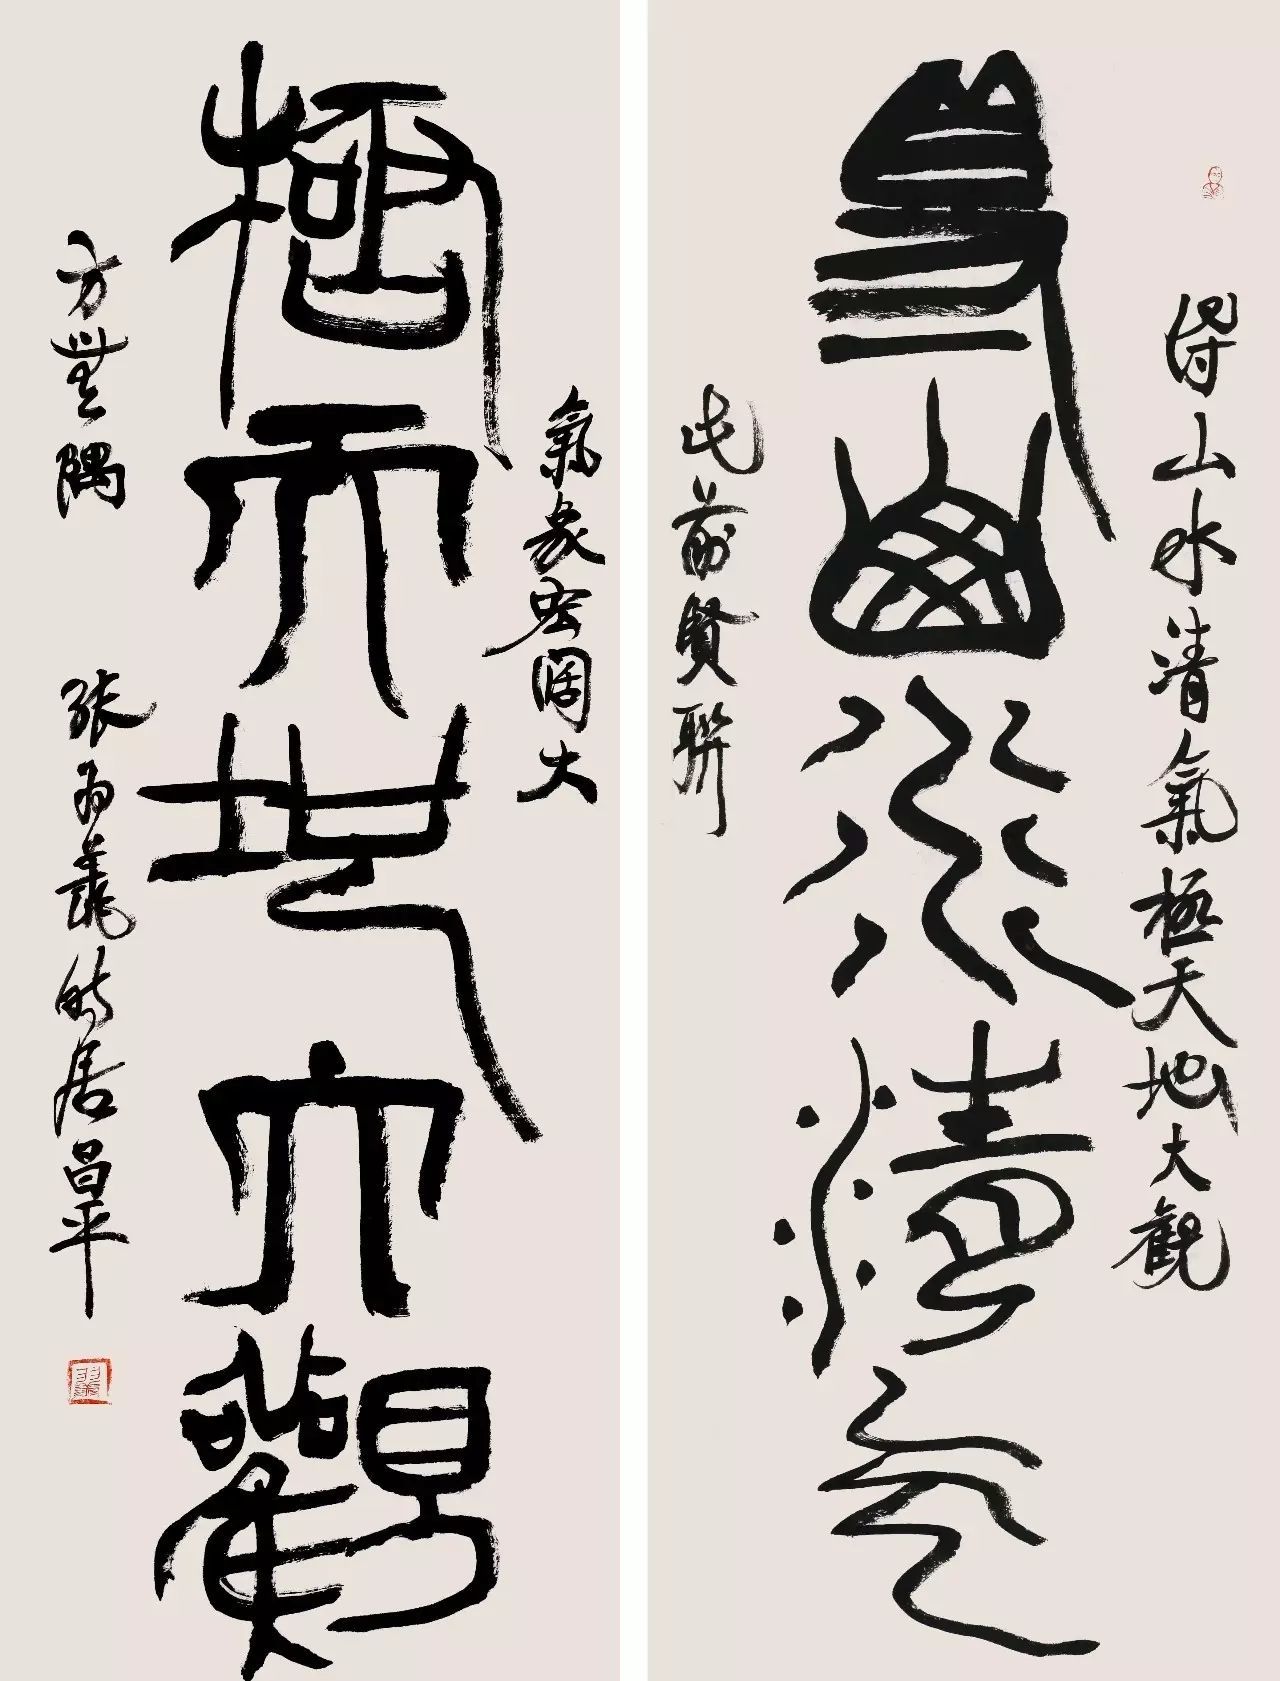 得山水清氣極天地大觀
得山水清氣
此前賢聯
氣象宏闊大
極天地大觀
方無隅 張 時居昌平